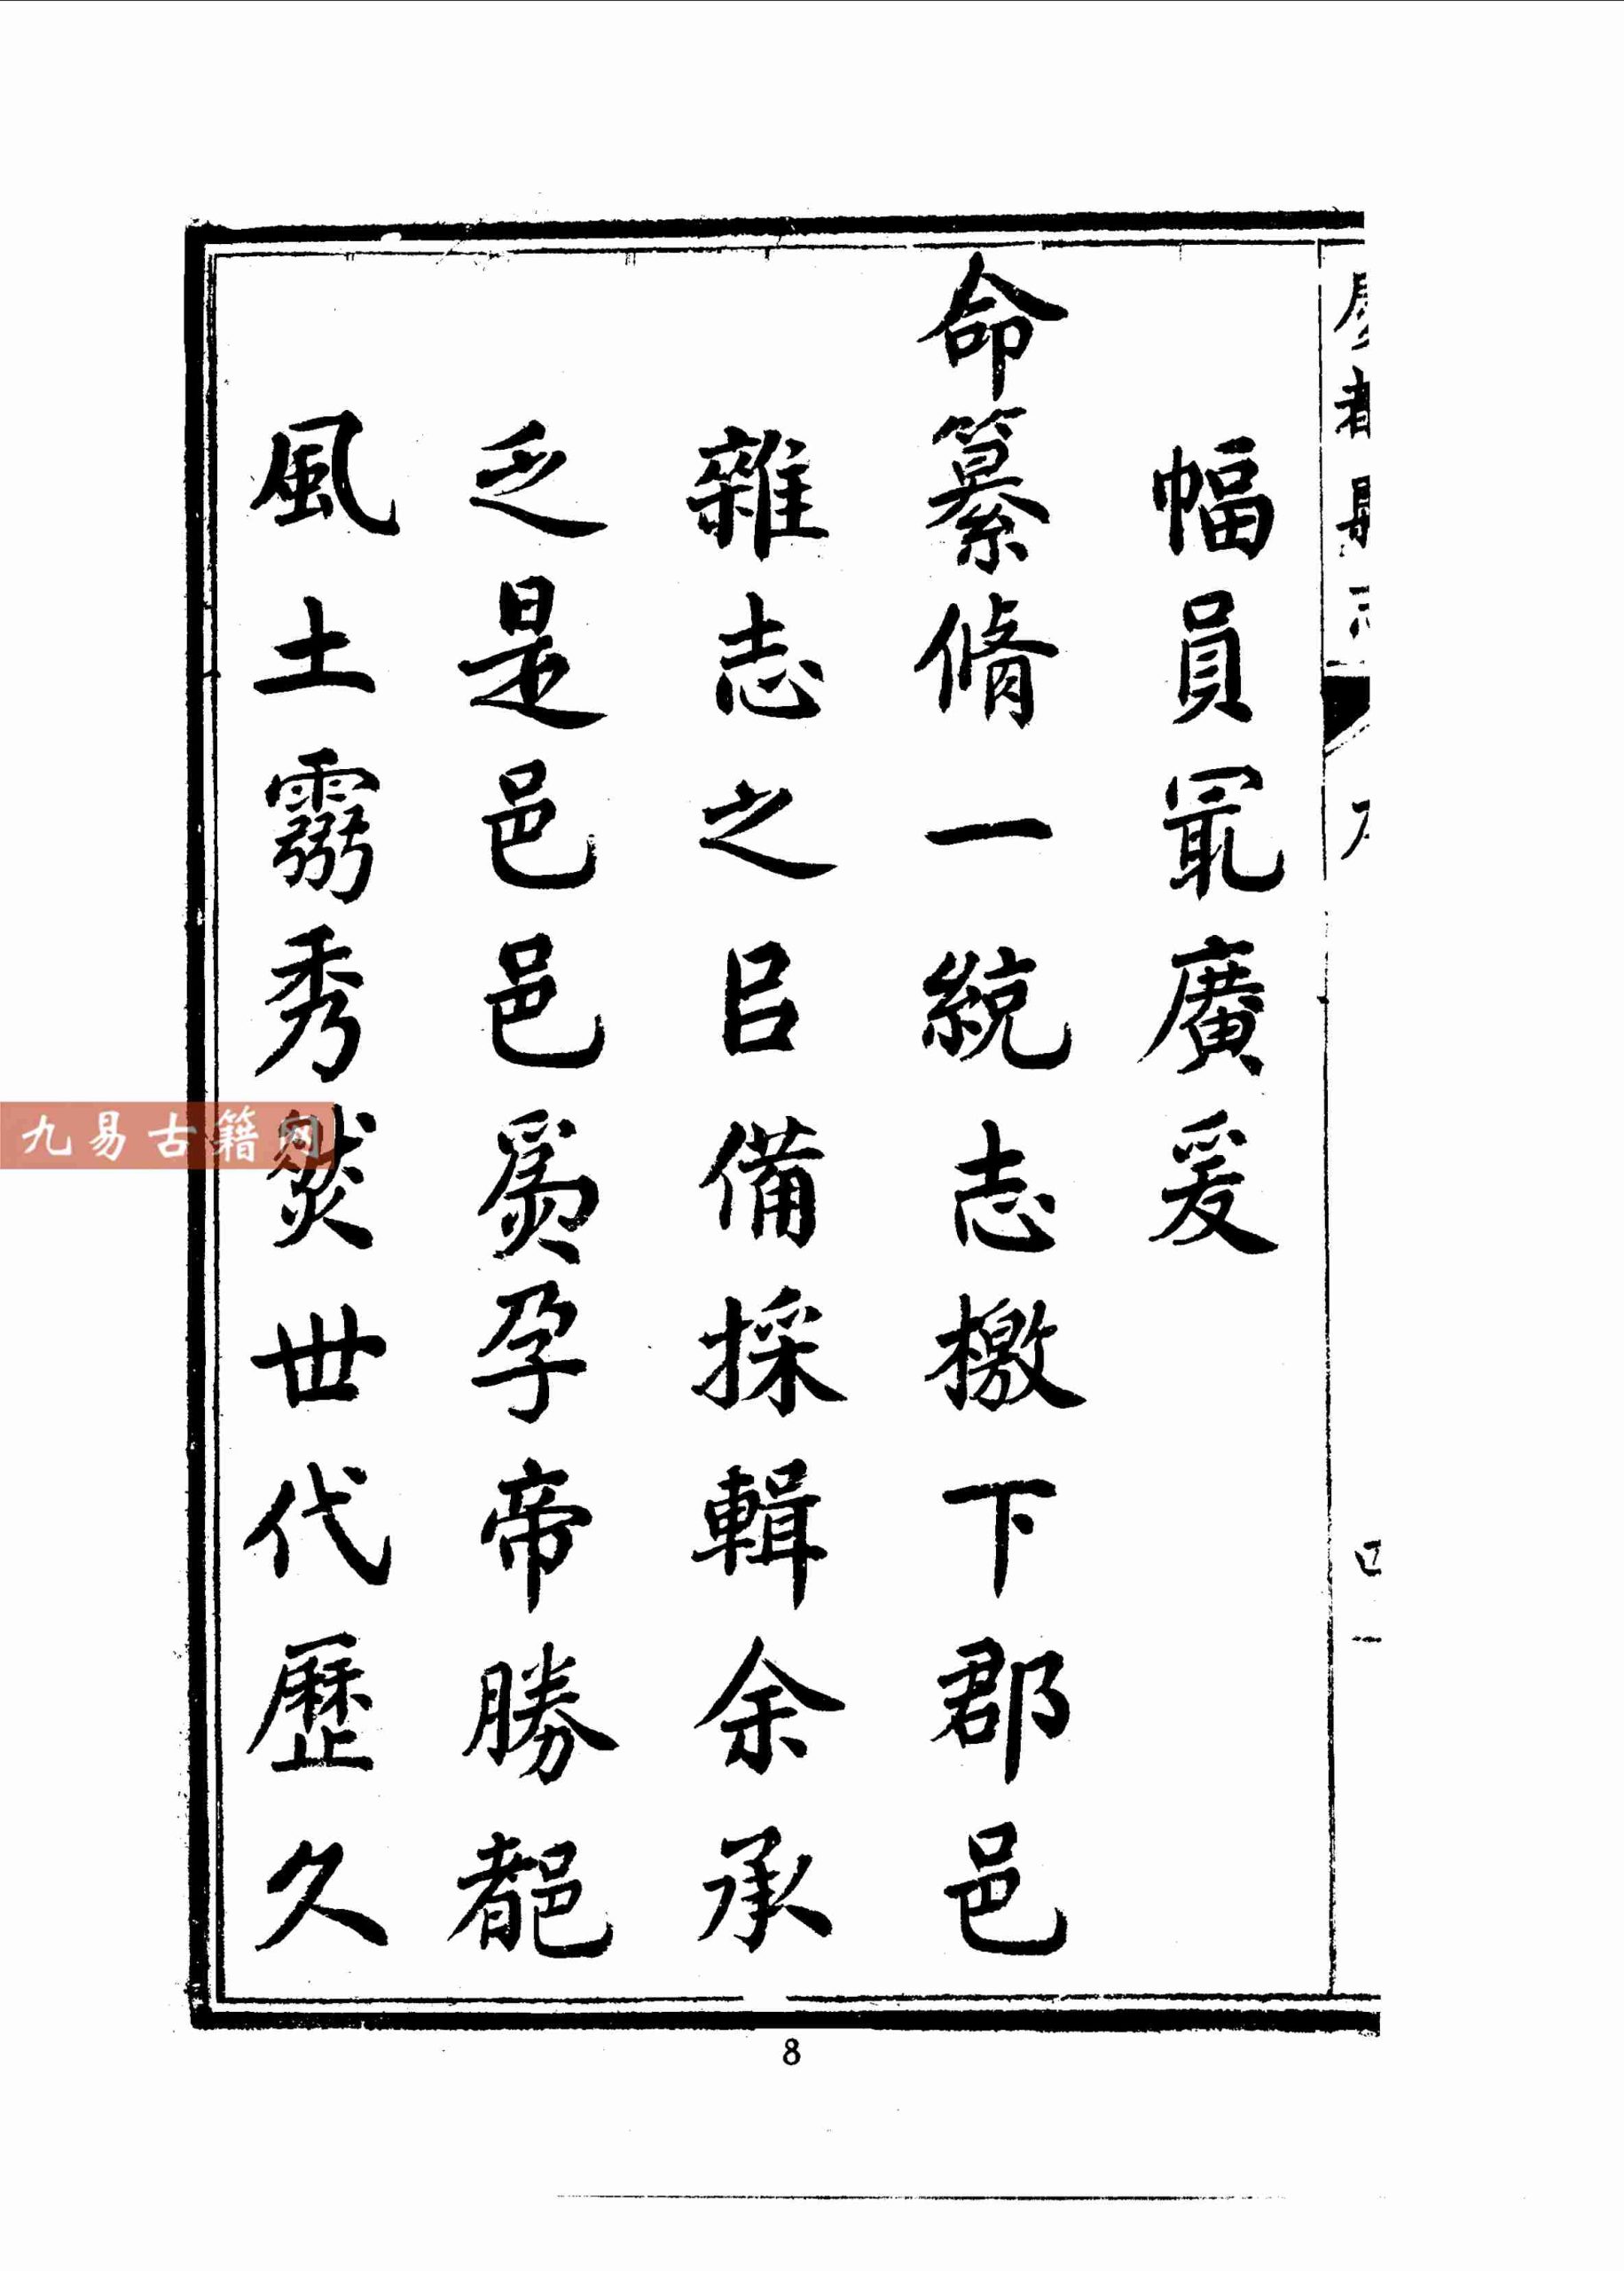 幅員冣廣爰
命纂脩一統志檄下郡邑
雜志之㠯備採輯余承
乏是邑邑爲孕帝勝都
風土靈秀然世代歷久
九易古籍网
8